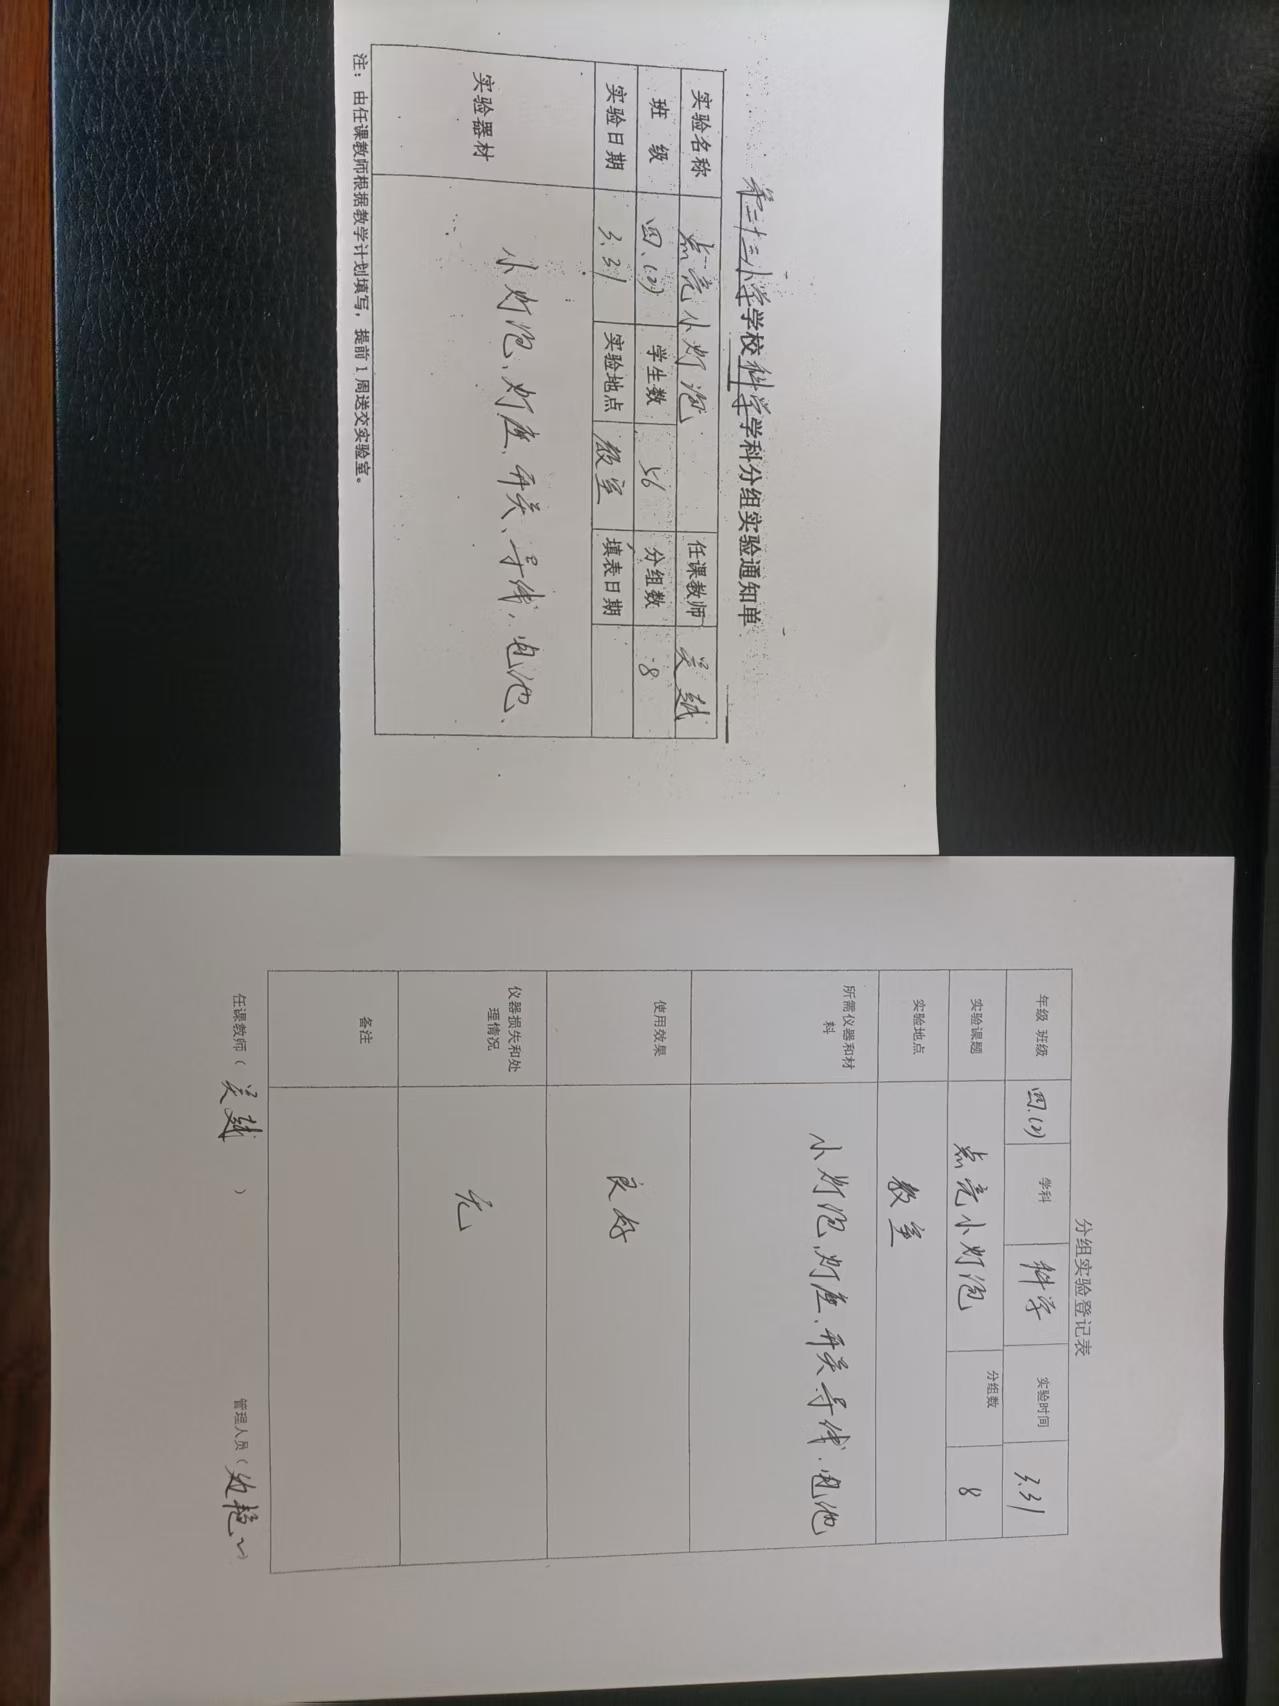 第二十三小学学校科学学科分组实验通知单
实验名称 点亮小灯泡 任课教师 吴越
班 级 四.(2) 学生数 56 分组数 8
实验日期 3.31 实验地点 教室 填表日期
实验器材 小灯泡、灯座、开关、导线、电池、
注：由任课教师根据教学计划填写，提前1周送交实验室。
分组实验登记表
年级 班级 四.(2) 学科 科学 实验时间 3.31
实验课题 点亮小灯泡 分组数 8
实验地点 教室
所需仪器和材
料
小灯泡、灯座、开关、导线、电池
使用效果 良好
仪器损失和处
理情况
无
备注
任课教师（ 吴越 ） 管理人员（ ）